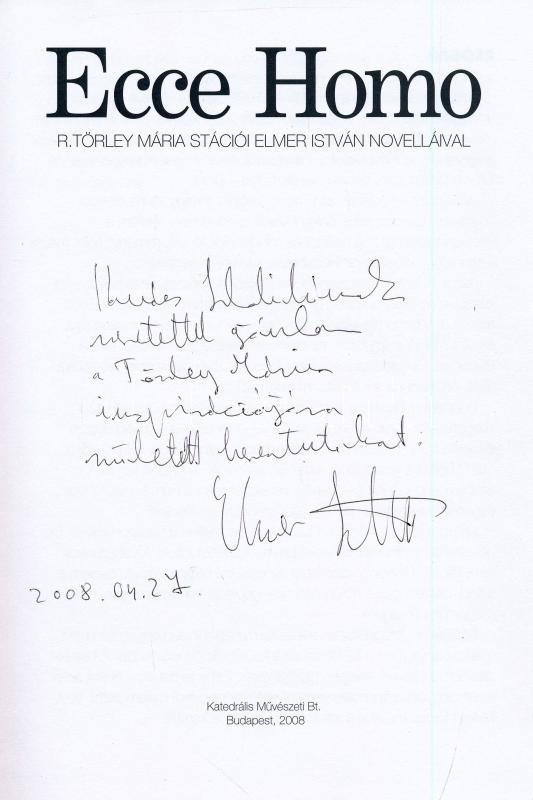 Ecce Homo
R.TÖRLEY MÁRIA STÁCIÓI ELMER ISTVÁN NOVELLÁIVAL
szeretettel ajánlom
a Törley Mária
inspirációjára
született keresztutakat:
Elmer István
2008.04.27.
Katedrális Művészeti Bt.
Budapest, 2008